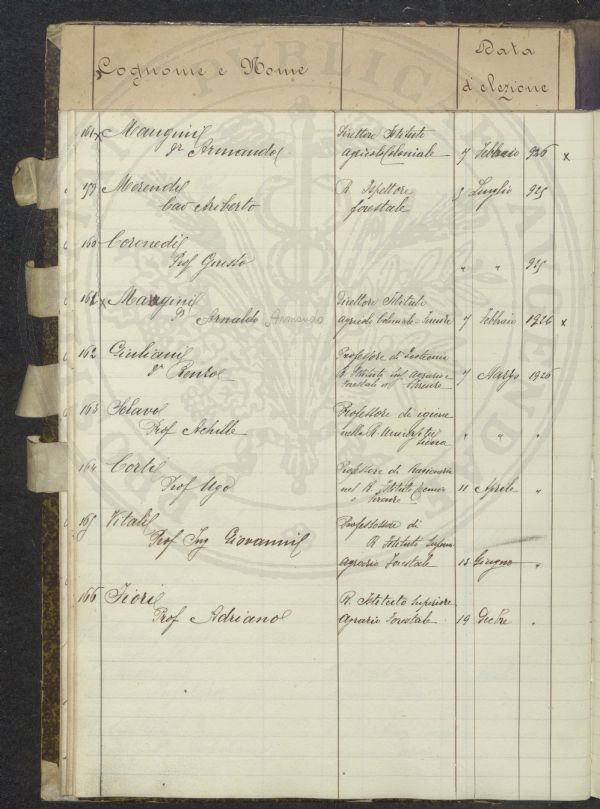 Cognome e Nome
Data
d'elezione
161 x Maugini Direttore Istituto
Dr Armando agricolo Coloniale 7 Febbraio 926 x
159 Merendi R. Ispettore
Cav Ariberto forestale 3 Luglio 925
160 Corenedi
Prof Giusto " " 925
161 x Maugini Direttore Istituto
Dr Arnaldo Armando agricolo Coloniale - Firenze 7 Febbraio 1926 x
162 Giuliani Professore di Zootecnia
Dr Renzo R. Istituto Sup. Agrario e
Forestale di Firenze 7 Marzo 1926
163 Sclavo Professore di igiene
Prof Achille nella R. Università di
Siena " " "
164 Corti Professore di Ragioneria
Prof Ugo nel R. Istituto
Firenze 11 Aprile "
165 Vitali Professore di
Prof Ing Giovanni R. Istituto Super.
agrario Forestale 13 Giugno "
166 Fiori R. Istituto Superiore
Prof Adriano Agrario Forestale 19 Dicbre "